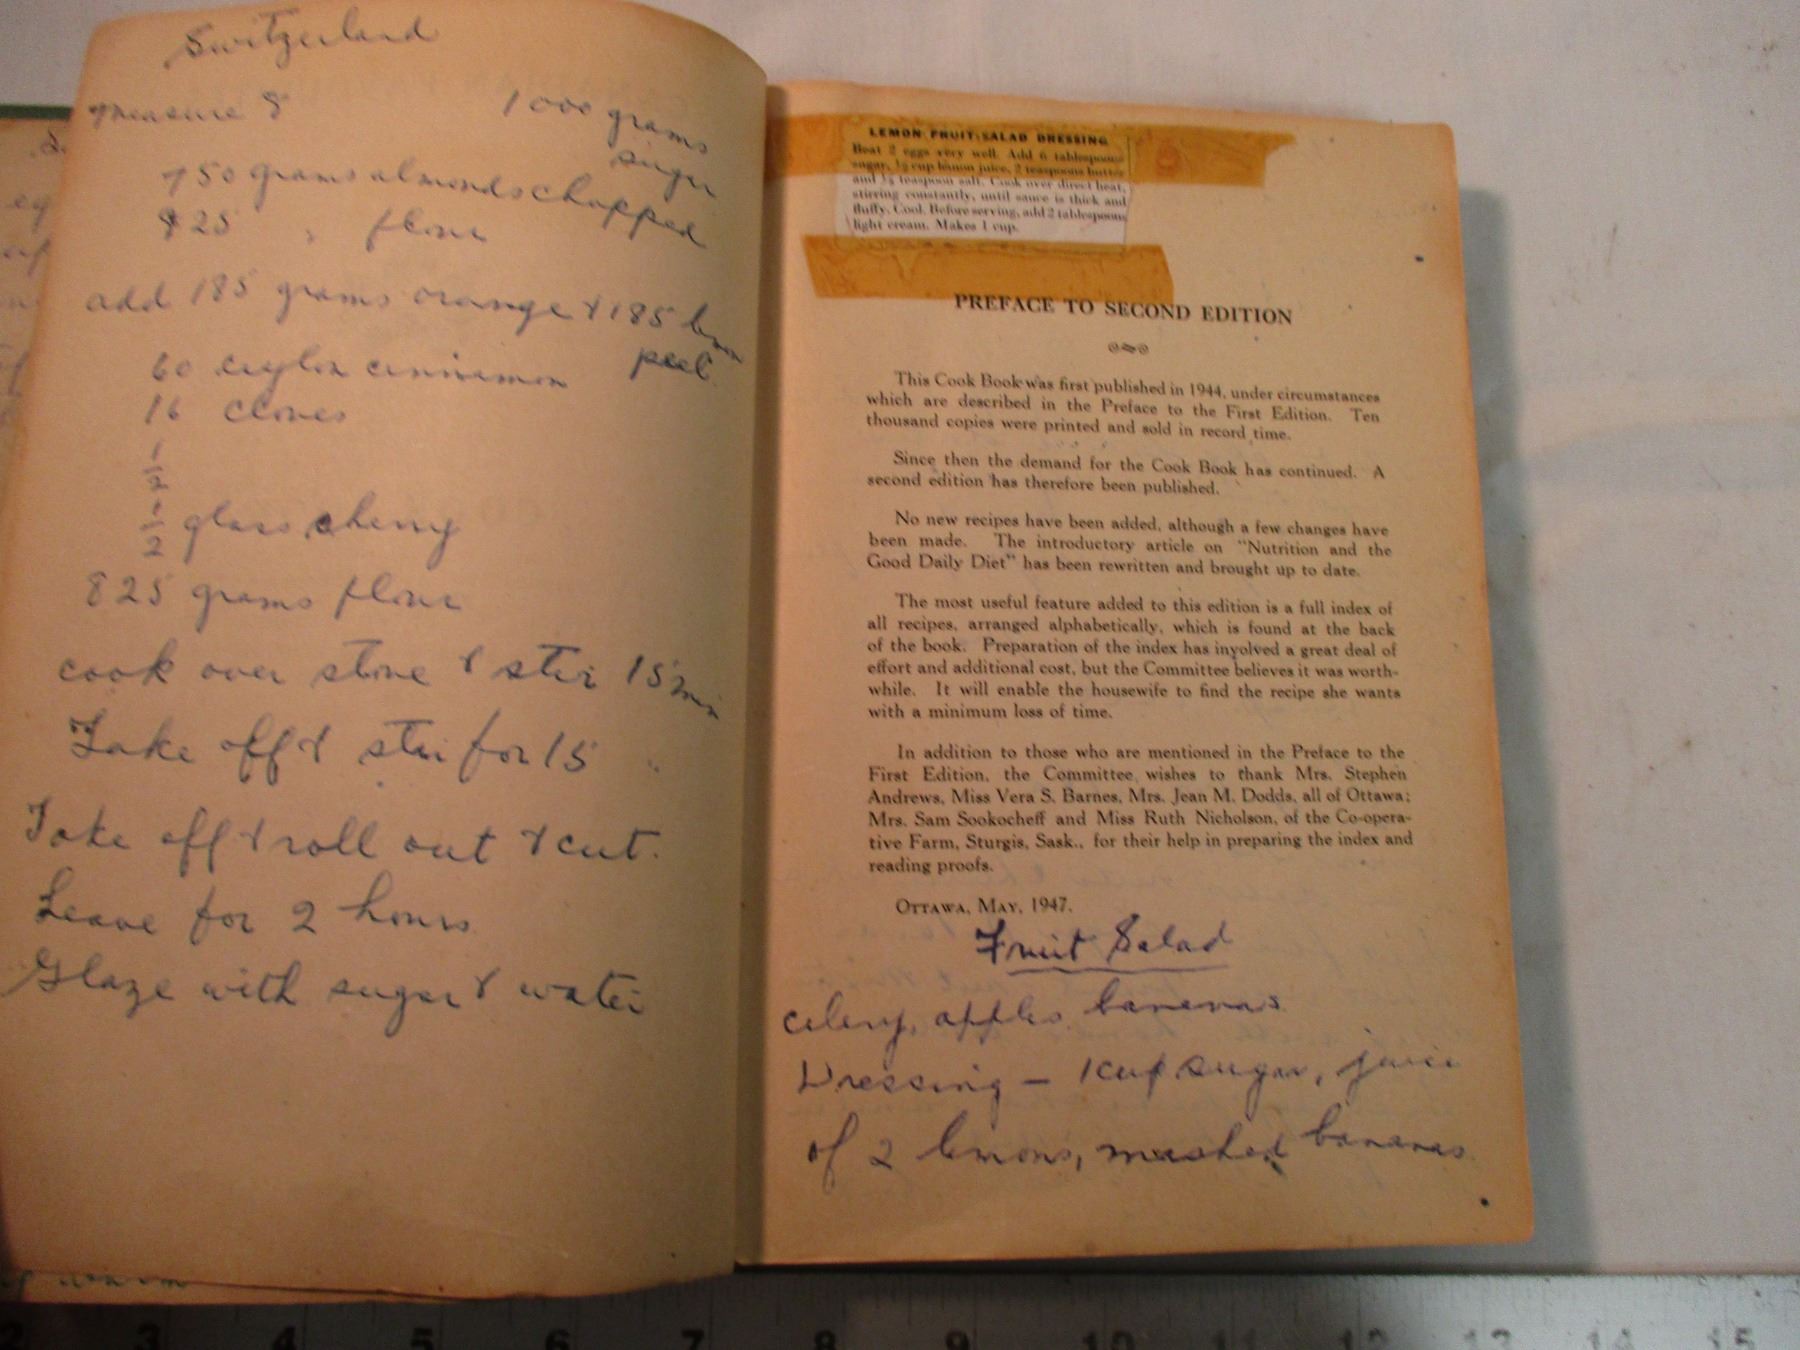 Switzerland
measure 8 1000 grams
sugar
750 grams almonds chopped
825 " flour
add 185 grams orange & 185 lemon
peel
60 ceylon cinnimon
16 cloves
1/2
1/2 glass cherry
825 grams flour
cook over stove & stir 15 min
Take off & stir for 15 "
Take off & roll out & cut.
Leave for 2 hours
Glaze with sugar & water
LEMON FRUIT SALAD DRESSING
Beat 2 eggs very well. Add 6 tablespoons
sugar, cup lemon juice, 2 teaspoons butter
and teaspoon salt. Cook over direct heat,
stirring constantly, until sauce is thick and
fluffy. Cool. Before serving, add 2 tablespoons
light cream. Makes 1 cup.
PREFACE TO SECOND EDITION
This Cook Book was first published in 1944, under circumstances
which are described in the Preface to the First Edition. Ten
thousand copies were printed and sold in record time.
Since then the demand for the Cook Book has continued. A
second edition has therefore been published.
No new recipes have been added, although a few changes have
been made. The introductory article on "Nutrition and the
Good Daily Diet" has been rewritten and brought up to date.
The most useful feature added to this edition is a full index of
all recipes, arranged alphabetically, which is found at the back
of the book. Preparation of the index has involved a great deal of
effort and additional cost, but the Committee believes it was worth-
while. It will enable the housewife to find the recipe she wants
with a minimum loss of time.
In addition to those who are mentioned in the Preface to the
First Edition, the Committee wishes to thank Mrs. Stephen
Andrews, Miss Vera S. Barnes, Mrs. Jean M. Dodds, all of Ottawa;
Mrs. Sam Sookocheff and Miss Ruth Nicholson, of the Co-opera-
tive Farm, Sturgis, Sask., for their help in preparing the index and
reading proofs.
OTTAWA, MAY, 1947.
Fruit Salad
celery, apples bananas
Dressing - 1 cup sugar, juice
of 2 lemons, mashed bananas
2 3 4 5 6 7 8 9 10 11 12 13 14 15